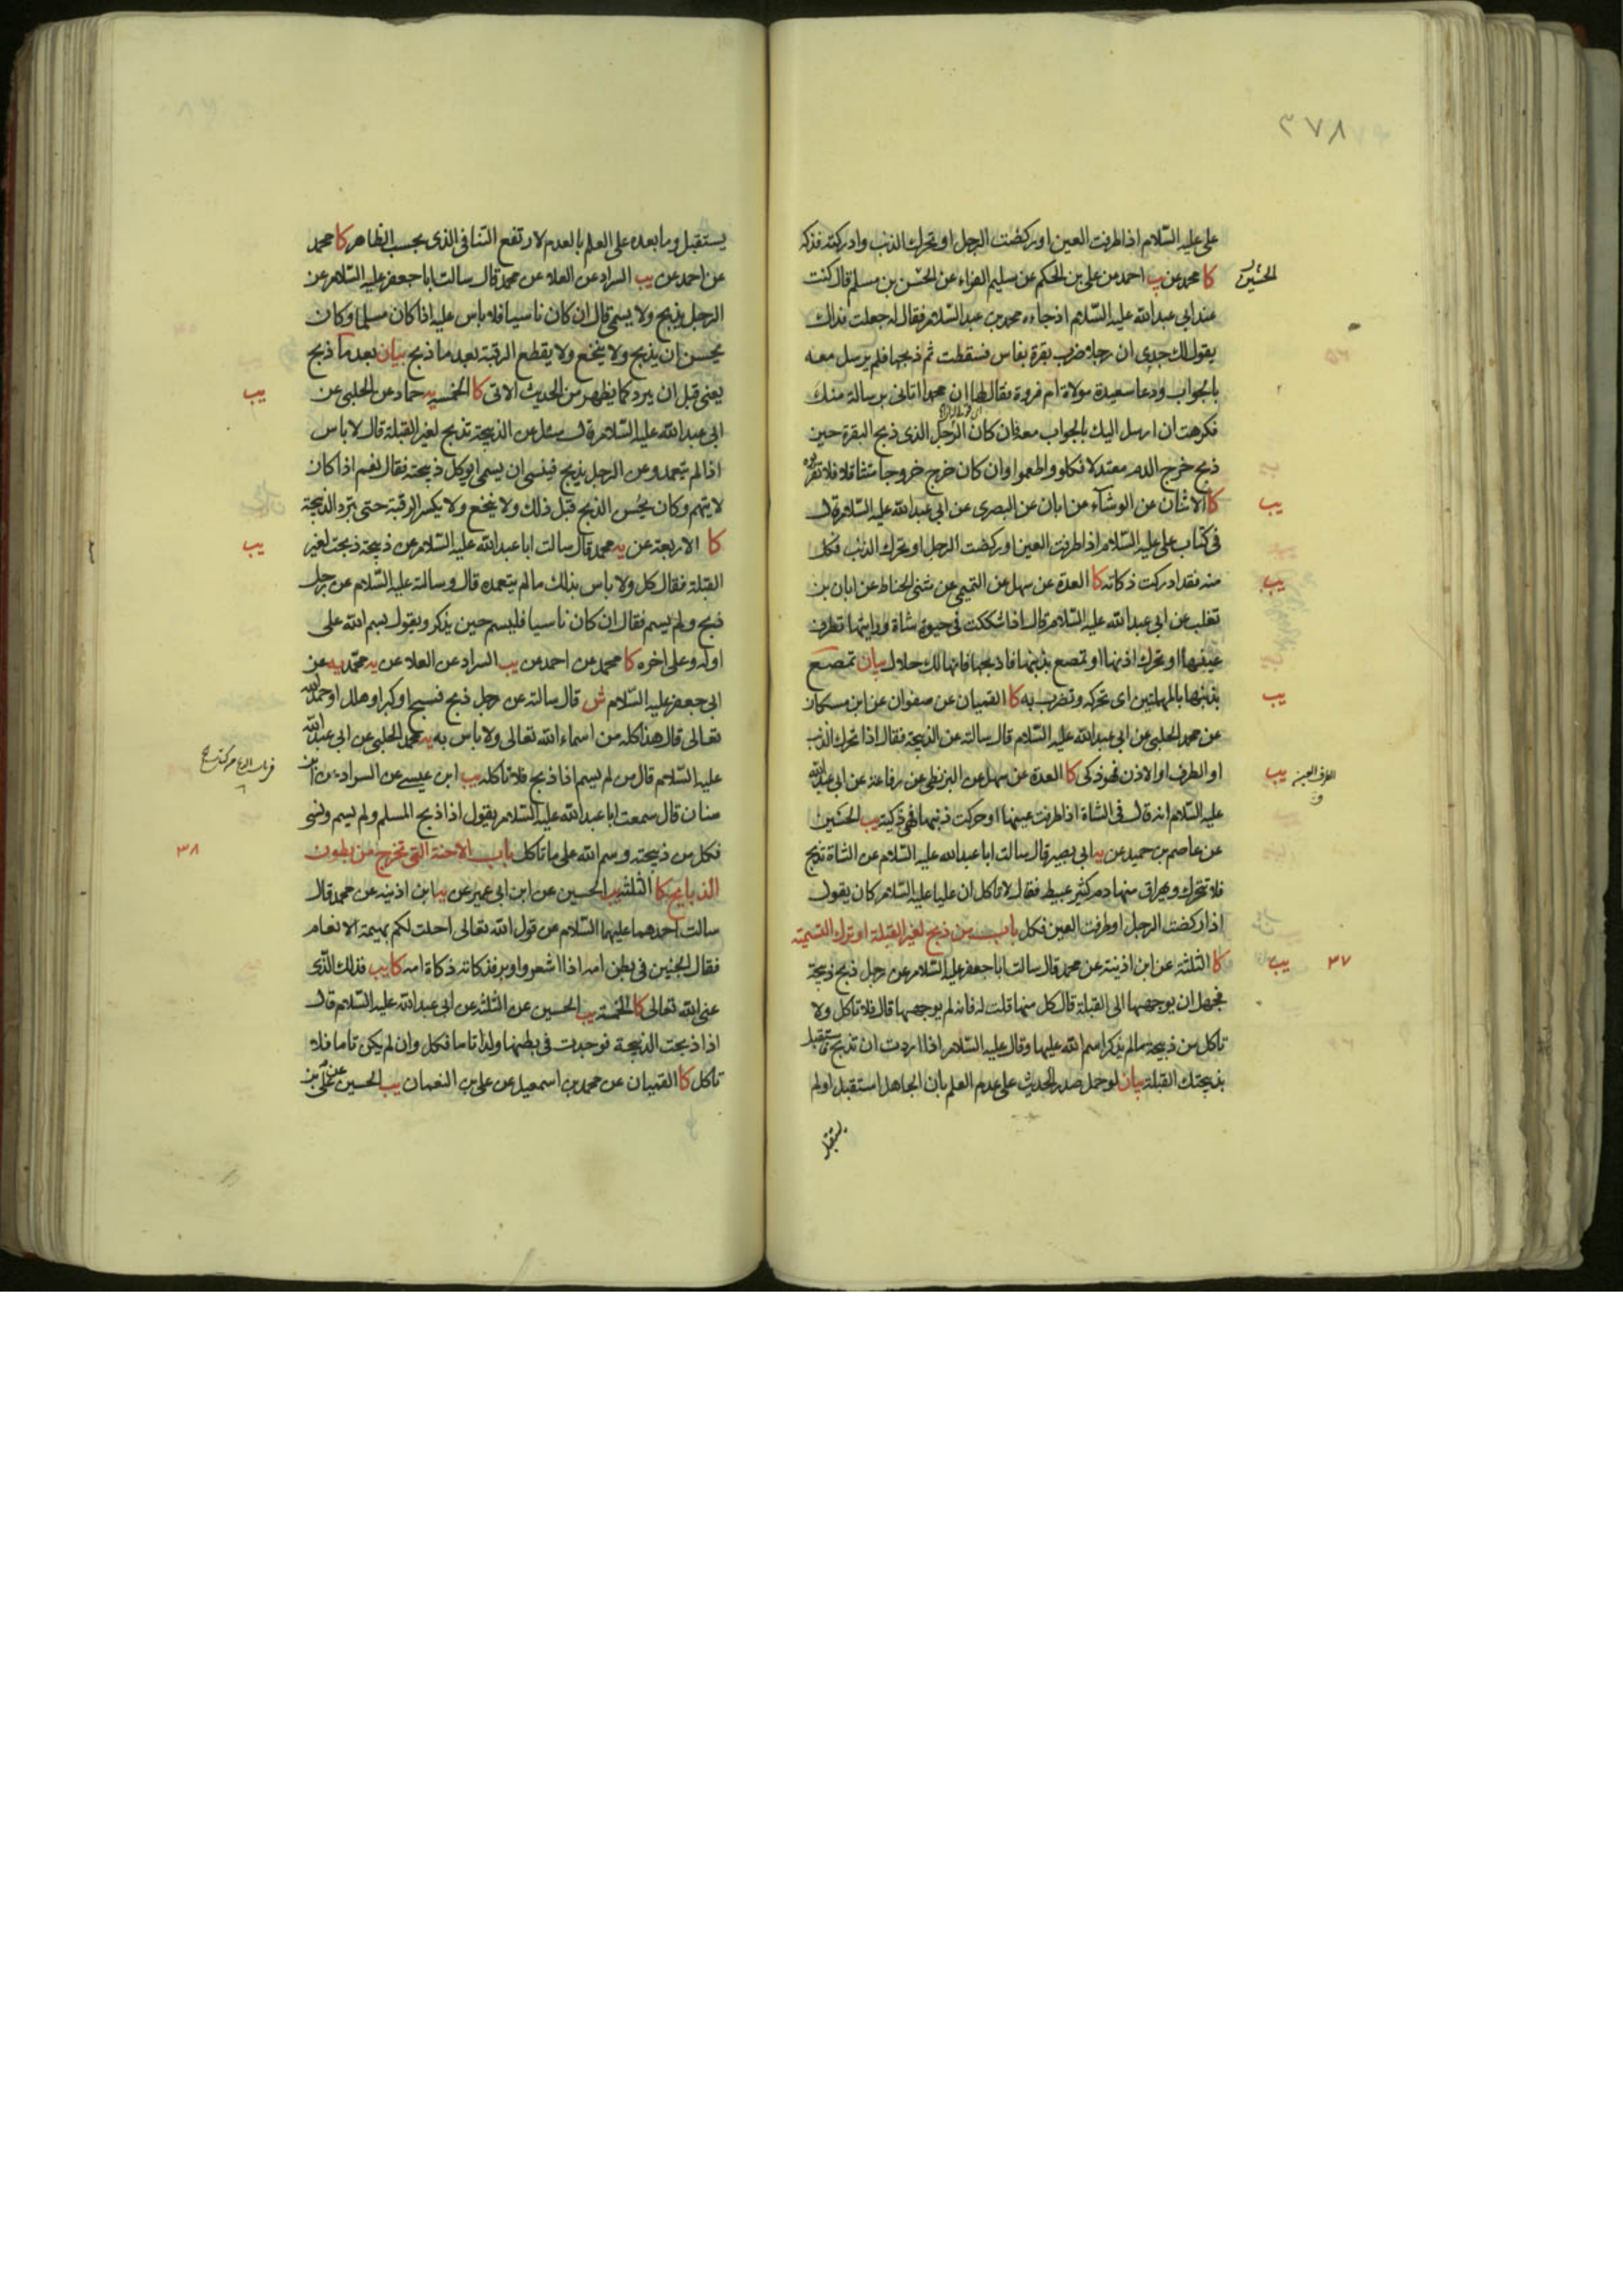 ٣٧٨
على عليه السّلام اذا طرفت العين او ركضت الرجل او تحرك الذنب وادركته فذكه
كا محمد عن يب احمد عن على بن الحكم عن سليم الفراء عن الحسن بن مسلم قال كنت
عند ابى عبد الله عليه السّلام اذ جاءه محمد بن عبد السّلام فقال له جعلت فداك
يقول لك جدى ان رجلا ضرب بقرة بفاس فسقطت ثم ذبحها فلم يرسل معه
بالجواب ودعا سعيدة مولاة ام فروة فقال لها ان محمدا اتانى برسالة منك
فكرهت ان ارسل اليك بالجواب معه فان كان الرجل الذى ذبح البقرة حين
ذبح خرج الدم معتدلا فكلوا واطعموا وان كان خرج خروجا متثاقلا فلا تقربوه
كا الاثنان عن الوشاء عن ابان عن البصرى عن ابى عبد الله عليه السّلام قال
فى كتاب على عليه السّلام اذا طرفت العين او ركضت الرجل او تحرك الذنب فكل
منه فقد ادركت ذكاته كا العدة عن سهل عن التميمى عن مثنى الحناط عن ابان بن
تغلب عن ابى عبد الله عليه السّلام قال اذا شككت فى حيوة شاة ورايتها تطرف
عينها او تحرك اذنها او تمصع بذنبها فاذبحها فانها لك حلال بيان تمصع
بذنبها بالمهملتين اى تحركه وتضرب به كا القميان عن صفوان عن ابن مسكان
عن محمد الحلبى عن ابى عبد الله عليه السّلام قال سالته عن الذبيحة فقال اذا تحرك الذنب
او الطرف او الاذن فهو ذكى كا العدة عن سهل عن البزنطى عن رفاعة عن ابى عبد الله
عليه السّلام انه قال فى الشاة اذا طرفت عينها او حركت ذنبها فهى ذكية يب الحسين
عن عاصم بن حميد عن يه ابى بصير قال سالت ابا عبد الله عليه السّلام عن الشاة تذبح
فلا تتحرك ويهراق منها دم كثير عبيط فقال لا تاكل ان عليا عليه السّلام كان يقول
اذا ركضت الرجل او طرفت العين فكل باب من ذبح لغير القبلة او ترك التسمية
كا الثلثة عن ابن اذينة عن محمد قال سالت ابا جعفر عليه السّلام عن رجل ذبح ذبيحة
فجهل ان يوجهها الى القبلة قال كل منها قلت له فانه لم يوجهها قال فلا تاكل ولا
تاكل من ذبيحة ما لم يذكر اسم الله عليها وقال عليه السّلام اذا اردت ان تذبح فاستقبل
بذبيحتك القبلة بيان لو حمل صدر الحديث على عدم العلم بان الجاهل استقبل او لم
يستقبل
يب
يب
يب
يب
يب
٣٧
يستقبل وما بعده على العلم بالعدم لارتفع التنافى الذى بحسب الظاهر كا محمد
عن احمد عن يب السراد عن العلا عن محمد قال سالت ابا جعفر عليه السّلام عن
الرجل يذبح ولا يسمى قال ان كان ناسيا فلا باس عليه اذا كان مسلما وكان
يحسن ان يذبح ولا ينخع ولا يقطع الرقبة بعد ما ذبح بيان بعد ما ذبح
يعنى قبل ان يبرد كما يظهر من الحديث الاتى كا الخمسة يه حماد عن الحلبى عن
ابى عبد الله عليه السّلام قال سئل عن الذبيحة تذبح لغير القبلة قال لا باس
اذا لم يتعمد وعن الرجل يذبح فينسى ان يسمى ايوكل ذبيحته فقال نعم اذا كان
لا يتهم وكان يحسن الذبح قبل ذلك ولا ينخع ولا يكسر الرقبة حتى تبرد الذبيحة
كا الاربعة عن يه محمد قال سالت ابا عبد الله عليه السّلام عن ذبيحة ذبحت لغير
القبلة فقال كل ولا باس بذلك ما لم يتعمده قال وسالته عليه السّلام عن رجل
ذبح ولم يسم فقال ان كان ناسيا فليسم حين يذكر ويقول بسم الله على
اوله وعلى اخره كا محمد عن احمد عن يب السراد عن العلا عن يه محمد يه عن
ابى جعفر عليه السّلام ش قال سالته عن رجل ذبح فسبح او كبر او هلل او حمد الله
تعالى قال هذا كله من اسماء الله تعالى ولا باس به يه محمد الحلبى عن ابى عبد الله
عليه السّلام قال من لم يسم اذا ذبح فلا تاكله يب ابن عيسى عن السراد عن ابن
سنان قال سمعت ابا عبد الله عليه السّلام يقول اذا ذبح المسلم ولم يسم ونسى
فكل من ذبيحته وسم الله على ما تاكل باب الاجنة التى تخرج من بطون
الذبايح كا الثلثة يب الحسين عن ابن ابى عمير عن يه ابن اذينه عن محمد قال
سالت احدهما عليهما السّلام عن قول الله تعالى احلت لكم بهيمة الانعام
فقال الجنين فى بطن امه اذا اشعر واوبر فذكاته ذكاة امه كا يب فذلك الذى
عنى الله تعالى كا الخمسة يب الحسين عن الثلثة عن ابى عبد الله عليه السّلام قال
اذا ذبحت الذبيحة فوجدت فى بطنها ولدا تاما فكل وان لم يكن تاما فلا
تاكل كا القميان عن محمد بن اسمعيل عن على بن النعمان يب الحسين عن على بن
يب
يب
٣٨